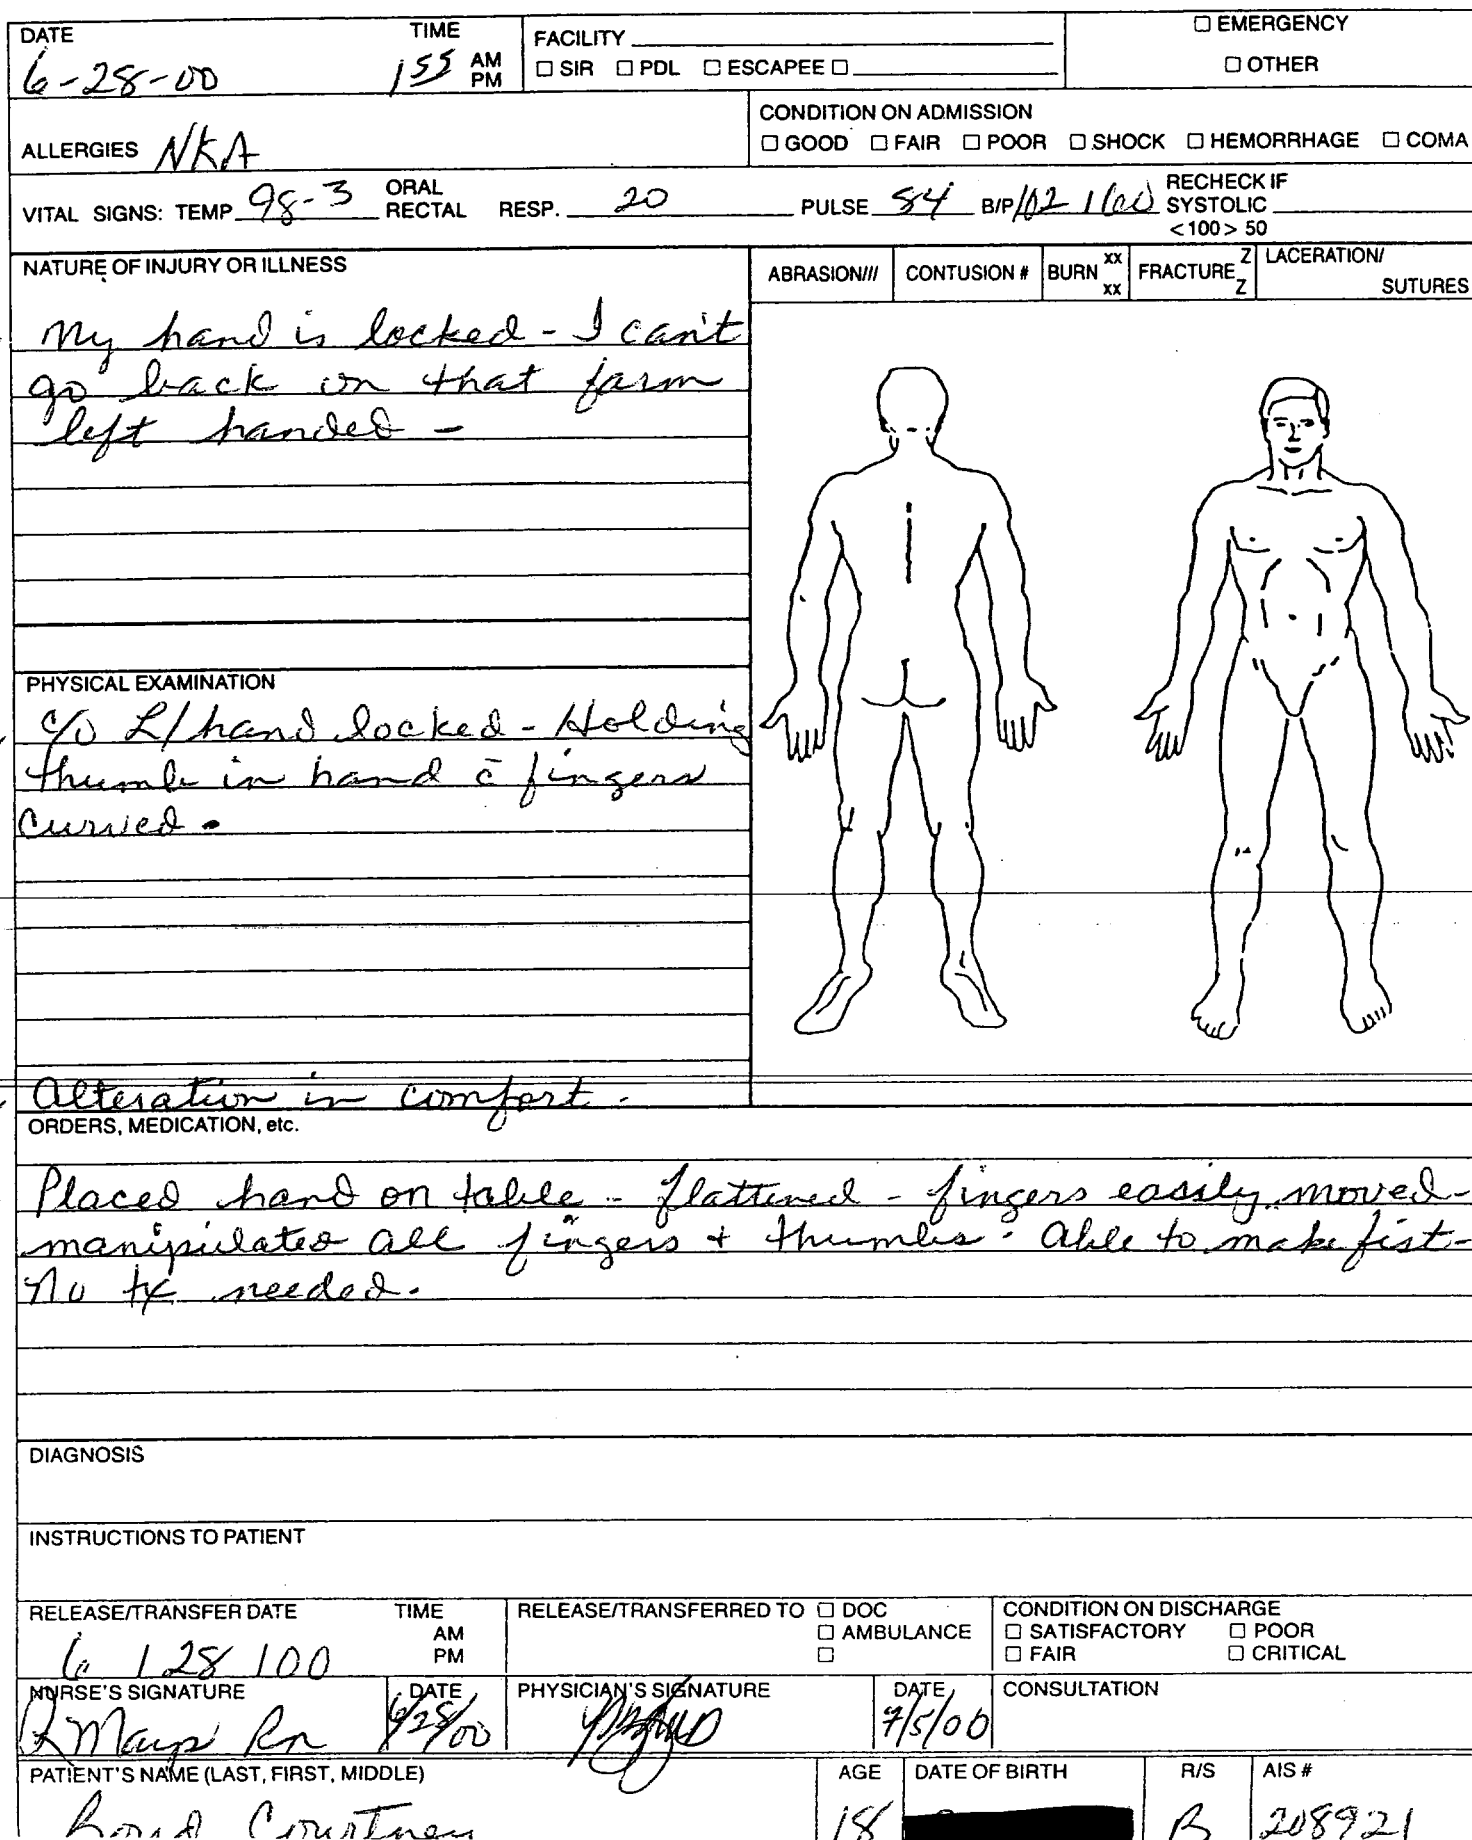 DATE TIME FACILITY
6-28-00 155 AM PM
□ SIR □ PDL □ ESCAPEE □
□ EMERGENCY
□ OTHER
ALLERGIES NKA
CONDITION ON ADMISSION
□ GOOD □ FAIR □ POOR □ SHOCK □ HEMORRHAGE □ COMA
VITAL SIGNS: TEMP 98-3 ORAL RECTAL RESP. 20 PULSE 84 B/P 102 / 60 RECHECK IF SYSTOLIC <100> 50
NATURE OF INJURY OR ILLNESS
ABRASION/// CONTUSION # BURN xx xx FRACTURE Z Z LACERATION/ SUTURES
My hand is locked - I can't
go back on that farm
left handed -
PHYSICAL EXAMINATION
c/o L/hand locked - Holding
thumb in hand c̄ fingers
curved.
Alteration in comfort.
ORDERS, MEDICATION, etc.
Placed hand on table - flattened - fingers easily moved -
manipulated all fingers + thumbs. Able to make fist -
No tx needed.
DIAGNOSIS
INSTRUCTIONS TO PATIENT
RELEASE/TRANSFER DATE TIME AM PM
6 / 28 / 00
RELEASE/TRANSFERRED TO □ DOC
□ AMBULANCE
□
CONDITION ON DISCHARGE
□ SATISFACTORY □ POOR
□ FAIR □ CRITICAL
NURSE'S SIGNATURE DATE PHYSICIAN'S SIGNATURE DATE CONSULTATION
R Mays Rn 6/28/00 7/5/00
PATIENT'S NAME (LAST, FIRST, MIDDLE) AGE DATE OF BIRTH R/S AIS #
Courtney 18 B 208921